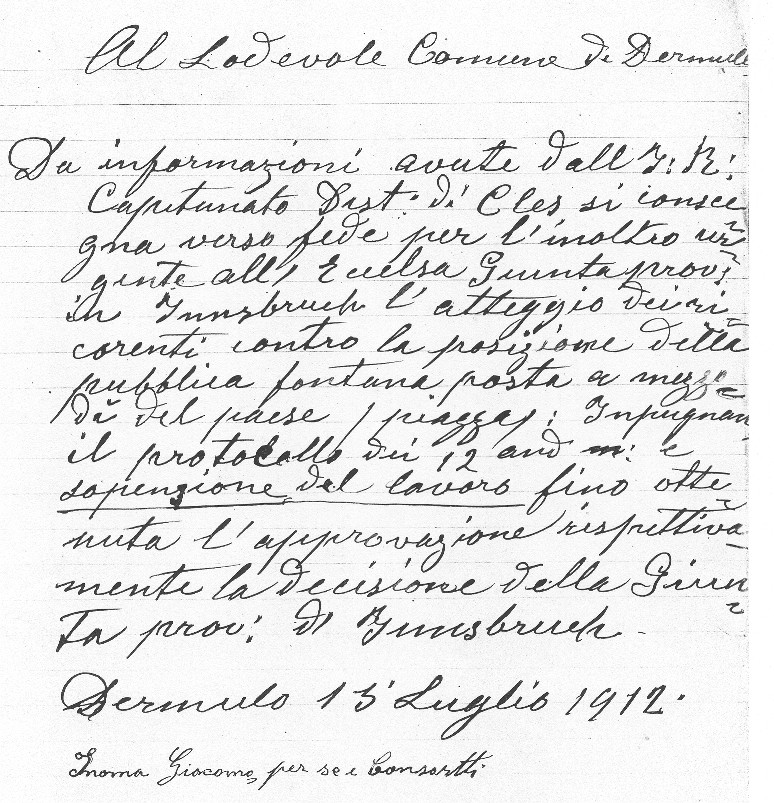 Al Lodevole Comune di Dermulo
Da informazioni avute dall I: R:
Capitanato Dist. di Cles si conse
gna verso fede per l'inoltro ur=
gente all, Ecelsa Giunta prov:
in Innsbruch l'atteggio dei ri=
corenti contro la posizione della
pubblica fontana posta a mezzo=
di del paese / piazza /: Inpugnan
il protocollo dei 12 and m: e
sopenzione del lavoro fino otte=
nuta l'approvazione rispettiva=
mente la decisione della Giun=
ta prov: di Innsbruch.
Dermulo 15 Luglio 1912.
Inama Giacomo, per se e Consortti